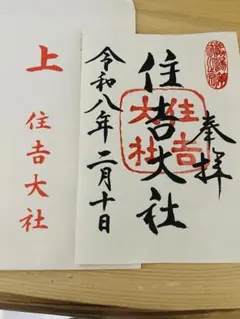 奉拝
住吉大社
住吉大社
令和八年二月十日
上
住吉大社